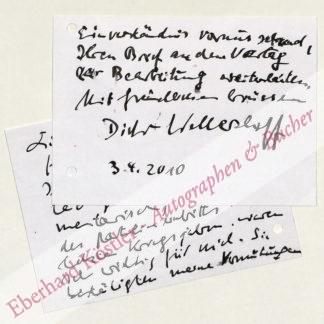 Einverständnis voraussetzend,
Ihren Brief an den Verlag
zur Bearbeitung weiterleiten
Mit freundlichen Grüssen
Dieter Wellershoff
3.4.2010
des
letzten Kriegsjahren waren
wichtig für mich. Sie
bestätigten meine Vermutungen
Eberhard Köstler - Autographen & Bücher